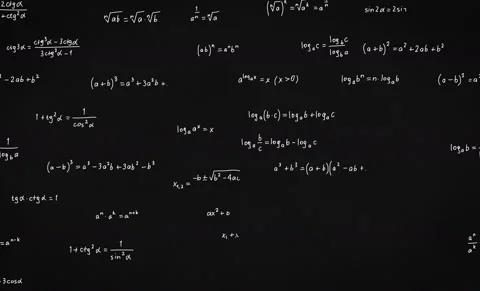 2ctgα
1+ctg²α
ⁿ√ab = ⁿ√a · ⁿ√b
1/aⁿ = ⁿ√a
(ⁿ√a)ᵏ = ⁿ√aᵏ = aⁿ
sin2α = 2sin
ctg3α = (ctg³α - 3ctgα)/(3ctg²α - 1)
(ab)ⁿ = aⁿbⁿ
logₐc = log_b c / log_b a
(a+b)² = a² + 2ab + b²
- 2ab + b²
(a+b)³ = a³ + 3a²b +
a^(logₐx) = x (x>0)
logₐbⁿ = n·logₐb
(a-b)² = a²
1 + tg²α = 1/cos²α
logₐ(b·c) = logₐb + logₐc
logₐaˣ = x
1/log_b a
logₐ b/c = logₐb - logₐc
logₐb =
(a-b)³ = a³ - 3a²b + 3ab² - b³
x₁,₂ = -b ± √b² - 4ac
a³ + b³ = (a+b)(a² - ab +
tgα · ctgα = 1
aⁿ · aᵏ = aⁿ⁺ᵏ
ax² + b
= aⁿ⁺ᵏ
x₁ +
1 + ctg²α = 1/sin²α
aⁿ/aᵏ
3cosα